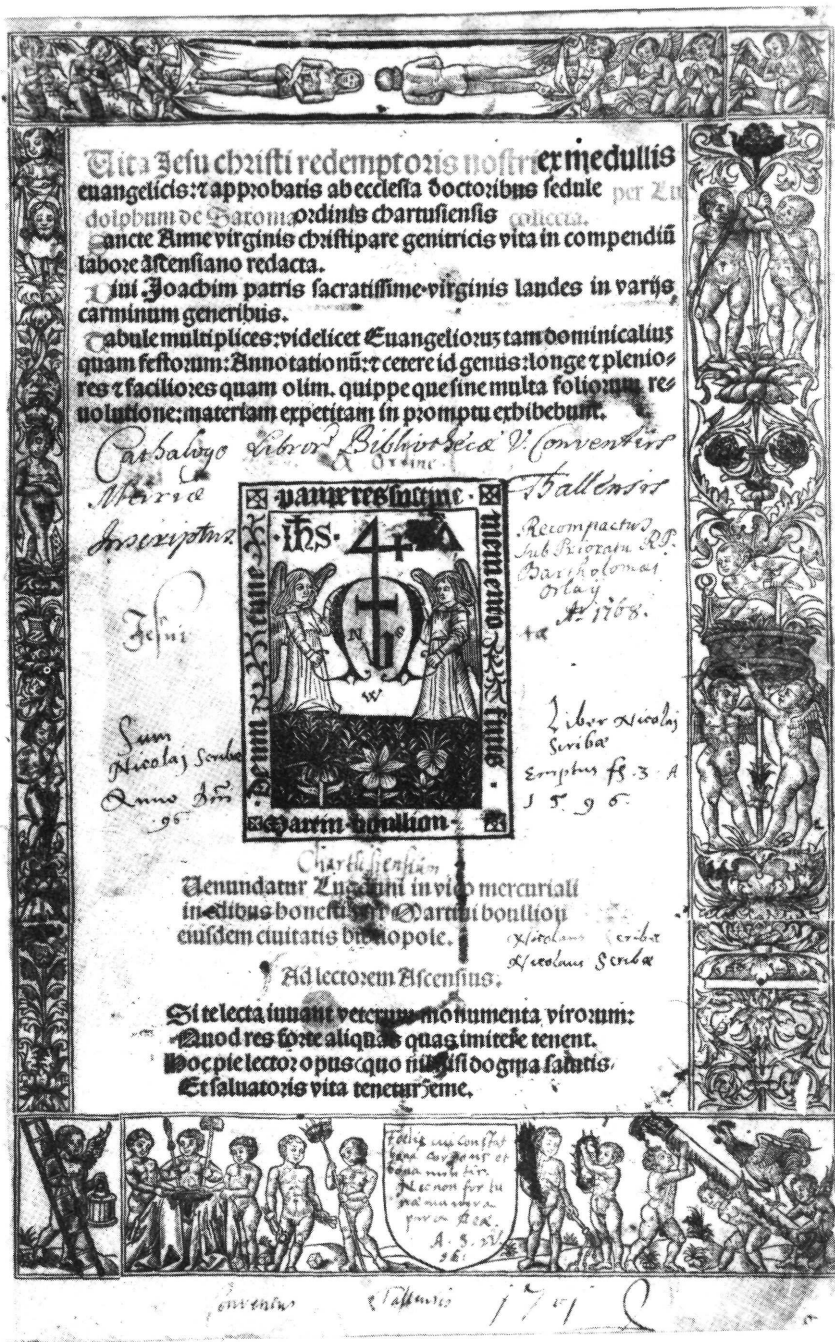 Uita Jesu christi redemptoris nostri ex medullis
euangelicis: ⁊ approbatis ab ecclesia doctoribus sedule per Lu
dolphum de Saxonia ordinis chartusiensis collecta.
Sancte Anne virginis christipare genitricis vita in compendiū
labore ascensiano redacta.
Diui Joachim patris sacratissime virginis laudes in varijs
carminum generibus.
Tabule multiplices: videlicet Euangelioruꝫ tam dominicaliuꝫ
quam festorum: Annotationū: ⁊ cetere id genus: longe ⁊ plenio-
res ⁊ faciliores quam olim. quippe que sine multa foliorum re-
uolutione: materiam expetitam in promptu exhibebunt.
Cathalogo Libror. Bibliothecæ V. Conventus
& ordine
Mariæ Thallensis
Inscriptus.
Recompactus
sub Prioratu R.P.
Bartholomæi
Orlay
Aº 1768.
Jesui
IHS
N S
W
memento finis
Deum time
Martin boullion
Sum
Nicolaj Scribæ
Anno Dm̄
96
Liber Nicolaj
Scribæ
Emptus fl. 3. A
1596.
Chartusiensium
Uenundatur Lugduni in vico mercuriali
in edibus honesti viri Martini boullion
eiusdem ciuitatis bibliopole.
Nicolaus Scribæ
Nicolaus Scribæ
Ad lectorem Ascensius.
Si te lecta iuuant veterum monumenta virorum:
Quod res forte aliquas quas imitere tenent.
Hoc pie lector opus quo nil nisi dogma salutis.
Et saluatoris vita tenetur: eme.
bona corporis et
bona
Necnon fortu
96
Conventus Thallensis 1701